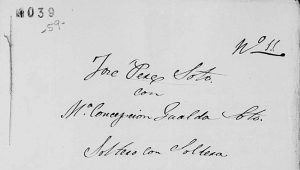 039
59.
Nº 11
Jose Perez Soto.
con
Mª Concepcion Gualda Sto.
Soltero con Soltera